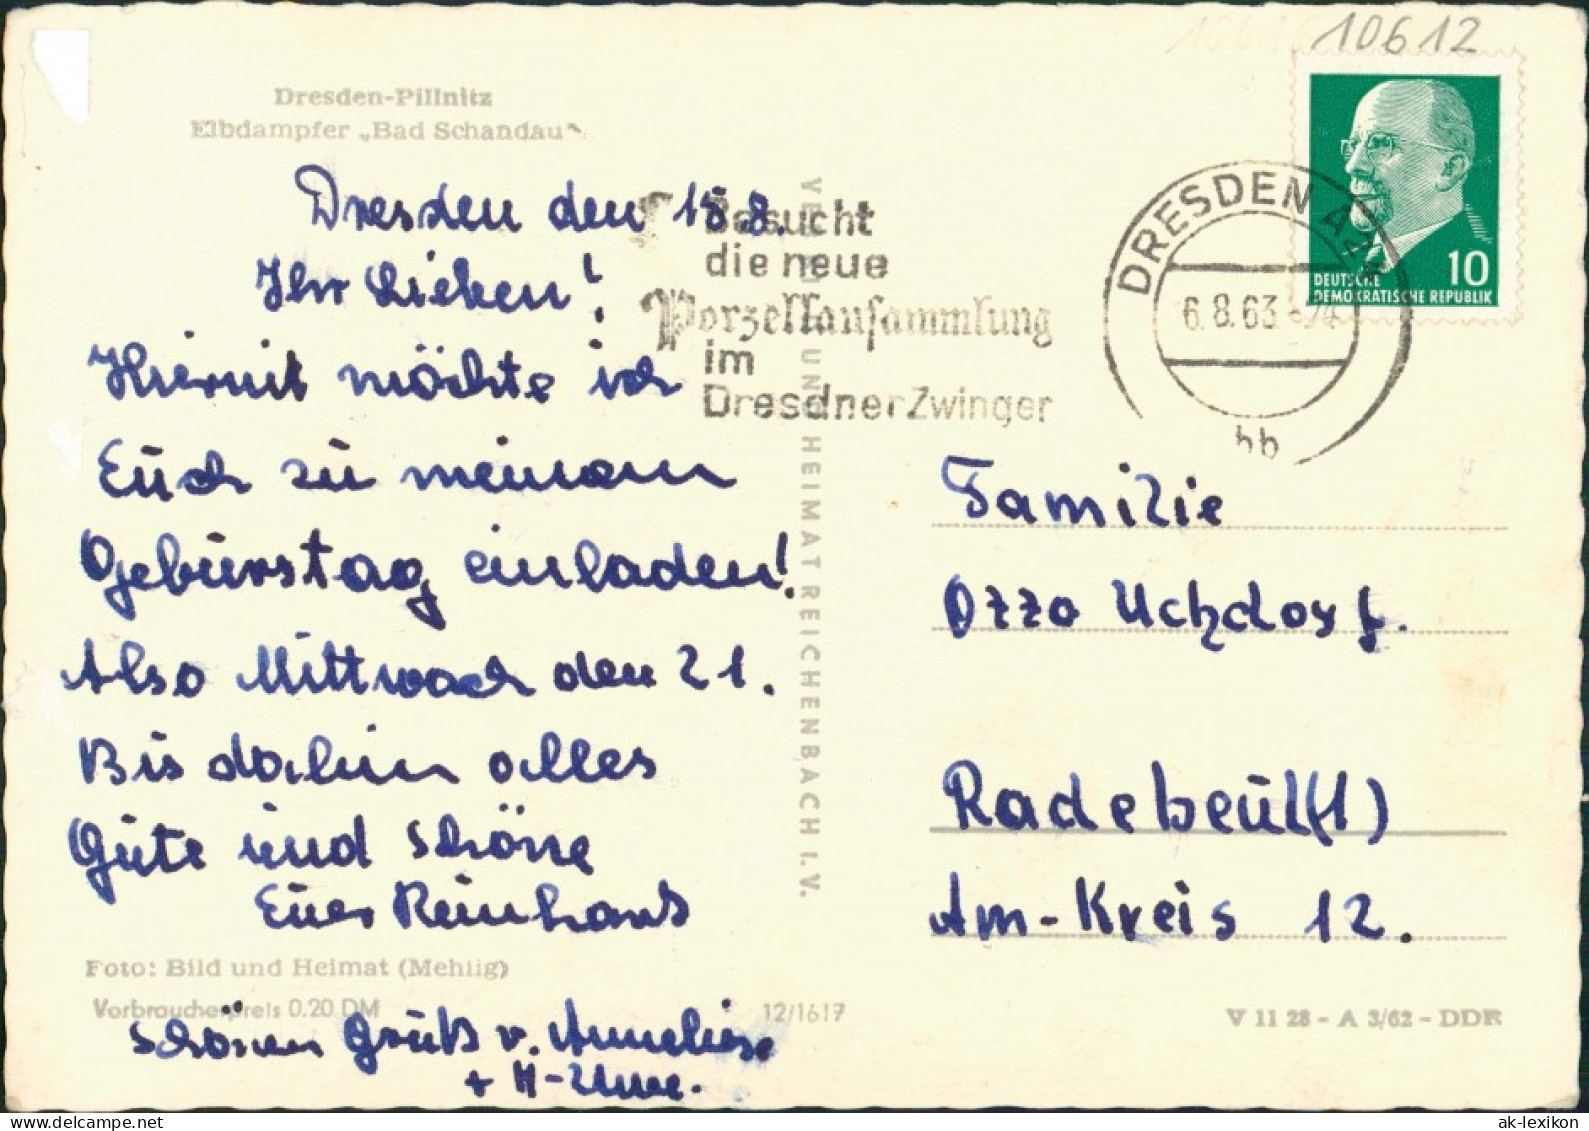 10612
Dresden-Pillnitz
Elbdampfer „Bad Schandau“
Dresden den 15.8.
Ihr Lieben!
Hiermit möchte ich
Euch zu meinem
Geburstag einladen!
Also Mittwoch den 21.
Bis dahin alles
Gute und schöne
Euer Reinhard
Foto: Bild und Heimat (Mehlig)
Verbraucherpreis 0.20 DM
schönen Gruß v. Anneliese
12/1617
VERLAG BILD UND HEIMAT REICHENBACH I. V.
Besucht
die neue
Porzellansammlung
im
Dresdner Zwinger
DRESDEN
6.8.63
hb
10
DEUTSCHE
DEMOKRATISCHE REPUBLIK
Familie
Otto Uchdorf.
Radebeul (1)
Am-Kreis 12.
V 11 28 - A 3/62 - DDR
ak-lexikon